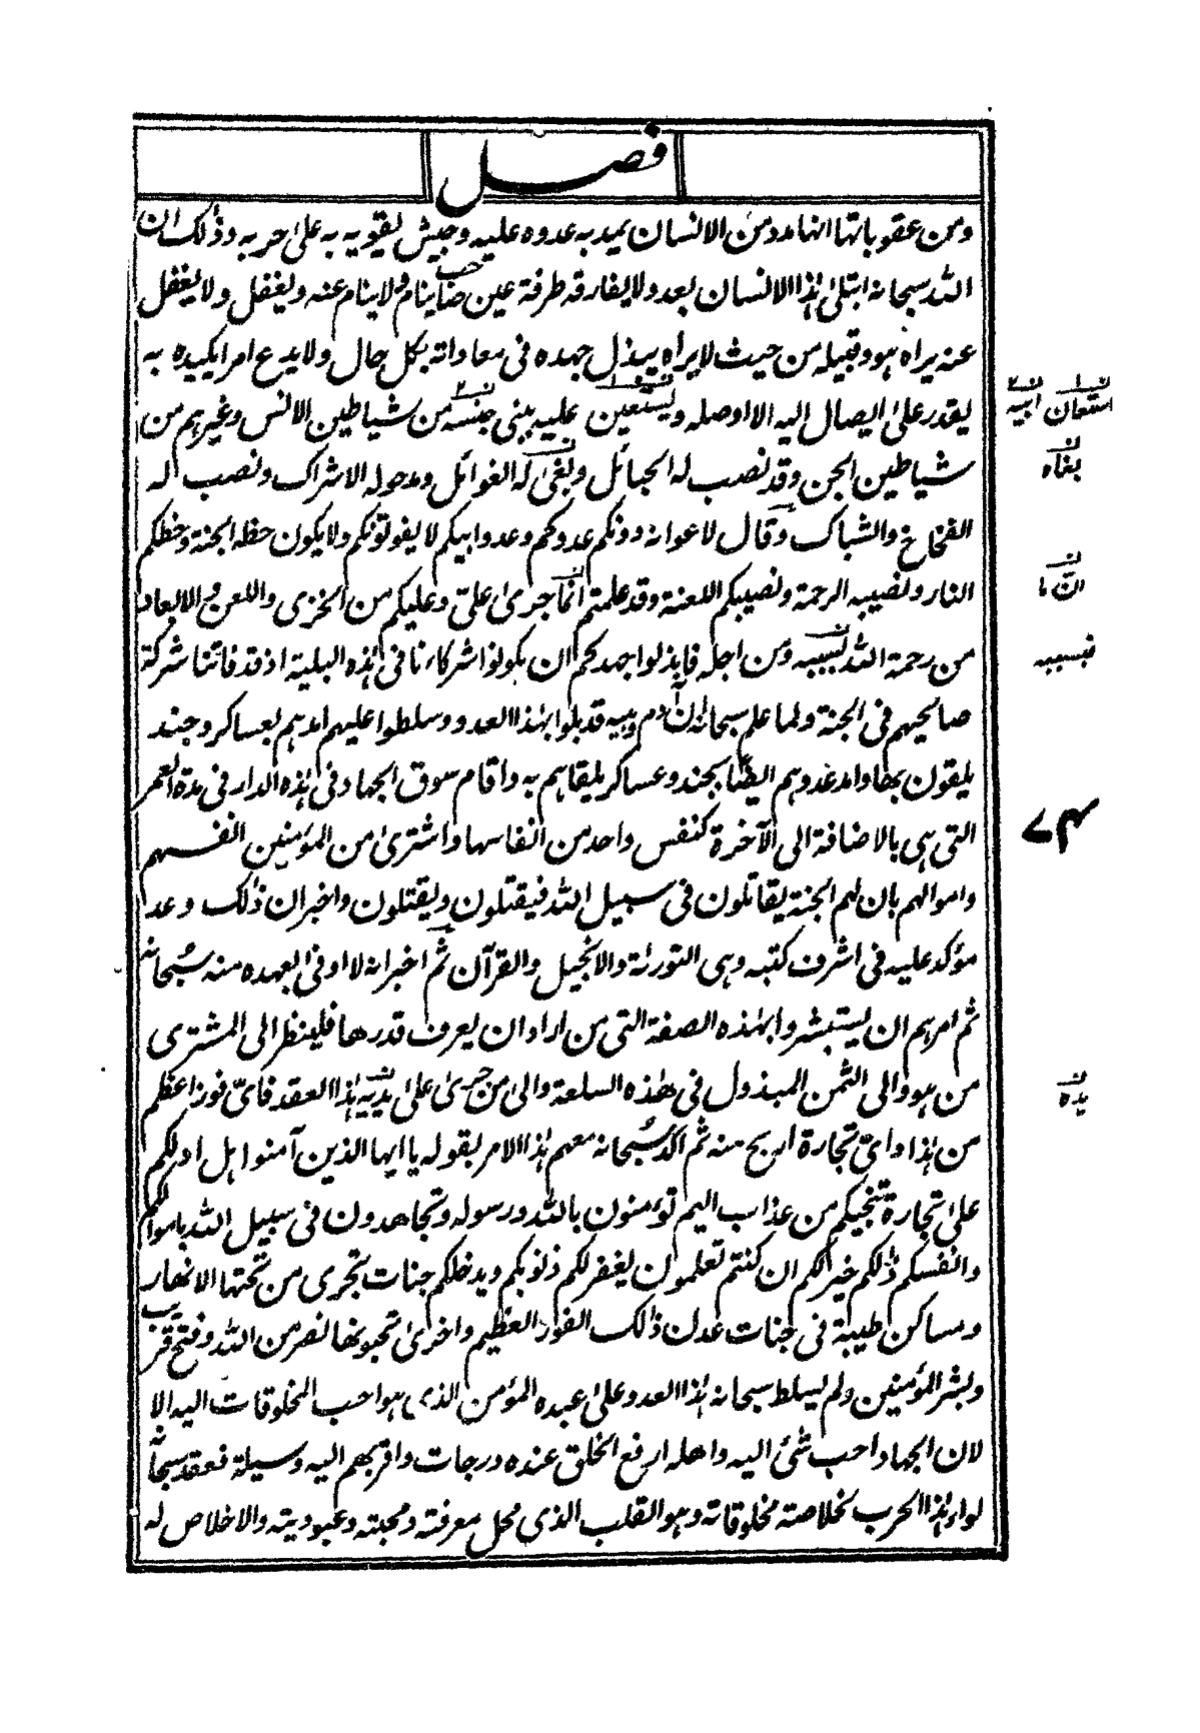 فصل
ومن عقوباتها انها مدد من الانسان يمد به عدوه عليه وجيش يقويه به على حربه وذلك ان
الله سبحانه ابتلى هذا الانسان بعدو لا يفارقه طرفة عين صاحب ينام ولا ينام عنه ويغفل ولا يغفل
عنه يراه هو وقبيله من حيث لا يراه يبذل جهده فى معاداته بكل حال ولا يدع امرا يكيده به
يقدر على ايصال اليه الا اوصله ويستعين عليه ببنى جنسه من شياطين الانس وغيرهم من
استعان ابيه
شياطين الجن وقد نصب له الحبائل وبغى له الغوائل ومد حوله الاشراك ونصب له
بغاه
الفخاخ والشباك وقال لاعوانه دونكم عدوكم وعدو ابيكم لا يفوتونكم ولا يكون حظه الجنة وحظكم
النار ونصيبه الرحمة ونصيبكم اللعنة وقد علمتم انما جرى علىّ وعليكم من الخزى واللعن والابعاد
ان ما
من رحمة الله لسببه ومن اجله فابذلوا جهدكم ان يكونوا شركاءنا فى هذه البلية اذ قد فاتنا شركة
فبسببه
صالحيهم فى الجنة ولما علم سبحانه ان آدم وبنيه قد بلوا بهذا العدو وسلطوا عليهم امدهم بعساكر وجند
يلقون بها وامد عدوهم ايضا بجند وعساكر يلقاهم به واقام سوق الجهاد فى هذه الدار فى مدة العمر
التى هى بالاضافة الى الآخرة كنفس واحد من انفاسها واشترى من المؤمنين انفسهم
واموالهم بان لهم الجنة يقاتلون فى سبيل الله فيقتلون ويقتلون واخبر ان ذلك وعد
مؤكد عليه فى اشرف كتبه وهى التورىة والانجيل والقرآن ثم اخبر انه لا اوفى بعهده منه سبحانه
ثم امرهم ان يستبشروا بهذه الصفقة التى من اراد ان يعرف قدرها فلينظر الى المشترى
من هو والى الثمن المبذول فى هذه السلعة والى من جرى على يديه هذا العقد فاىّ فوز اعظم
يده
من هذا واىّ تجارة اربح منه ثم اكد سبحانه معهم هذا الامر بقوله يا ايها الذين آمنوا هل ادلكم
على تجارة تنجيكم من عذاب اليم تؤمنون بالله ورسوله وتجاهدون فى سبيل الله باموالكم
وانفسكم ذلكم خير لكم ان كنتم تعلمون يغفر لكم ذنوبكم ويدخلكم جنات تجرى من تحتها الانهار
ومساكن طيبة فى جنات عدن ذلك الفوز العظيم واخرى تحبونها نصر من الله وفتح قريب
وبشر المؤمنين ولم يسلط سبحانه هذا العدو على عبده المؤمن الذى هو احب المخلوقات اليه الا
لان الجهاد احب شئ اليه واهله ارفع الخلق عنده درجات واقربهم اليه وسيلة فعقد سبحانه
لواء هذا الحرب بخلاصة مخلوقاته وهو القلب الذى محل معرفته ومحبته وعبوديته والاخلاص له